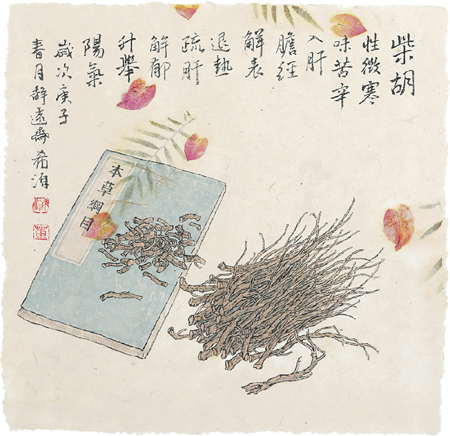 柴胡
性微寒
味苦辛
入肝
膽經
解表
退熱
疏肝
解郁
升舉
陽氣
歲次庚子
青月靜遠齋希海
本草綱目